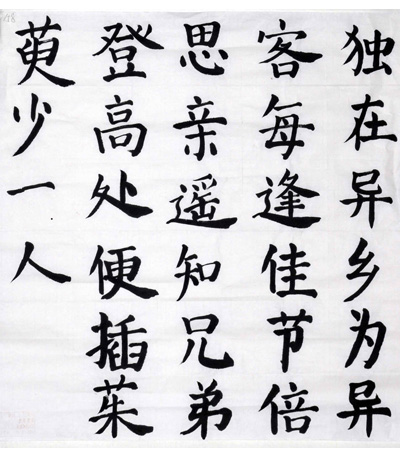 独在异乡为异
客每逢佳节倍
思亲遥知兄弟
登高处便插茱
萸少一人